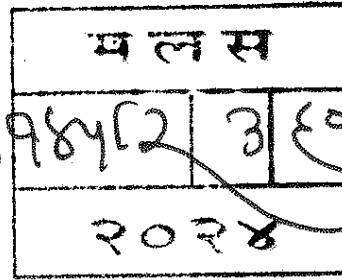 म ल स
१४५८२ ३ ६०
२०२४